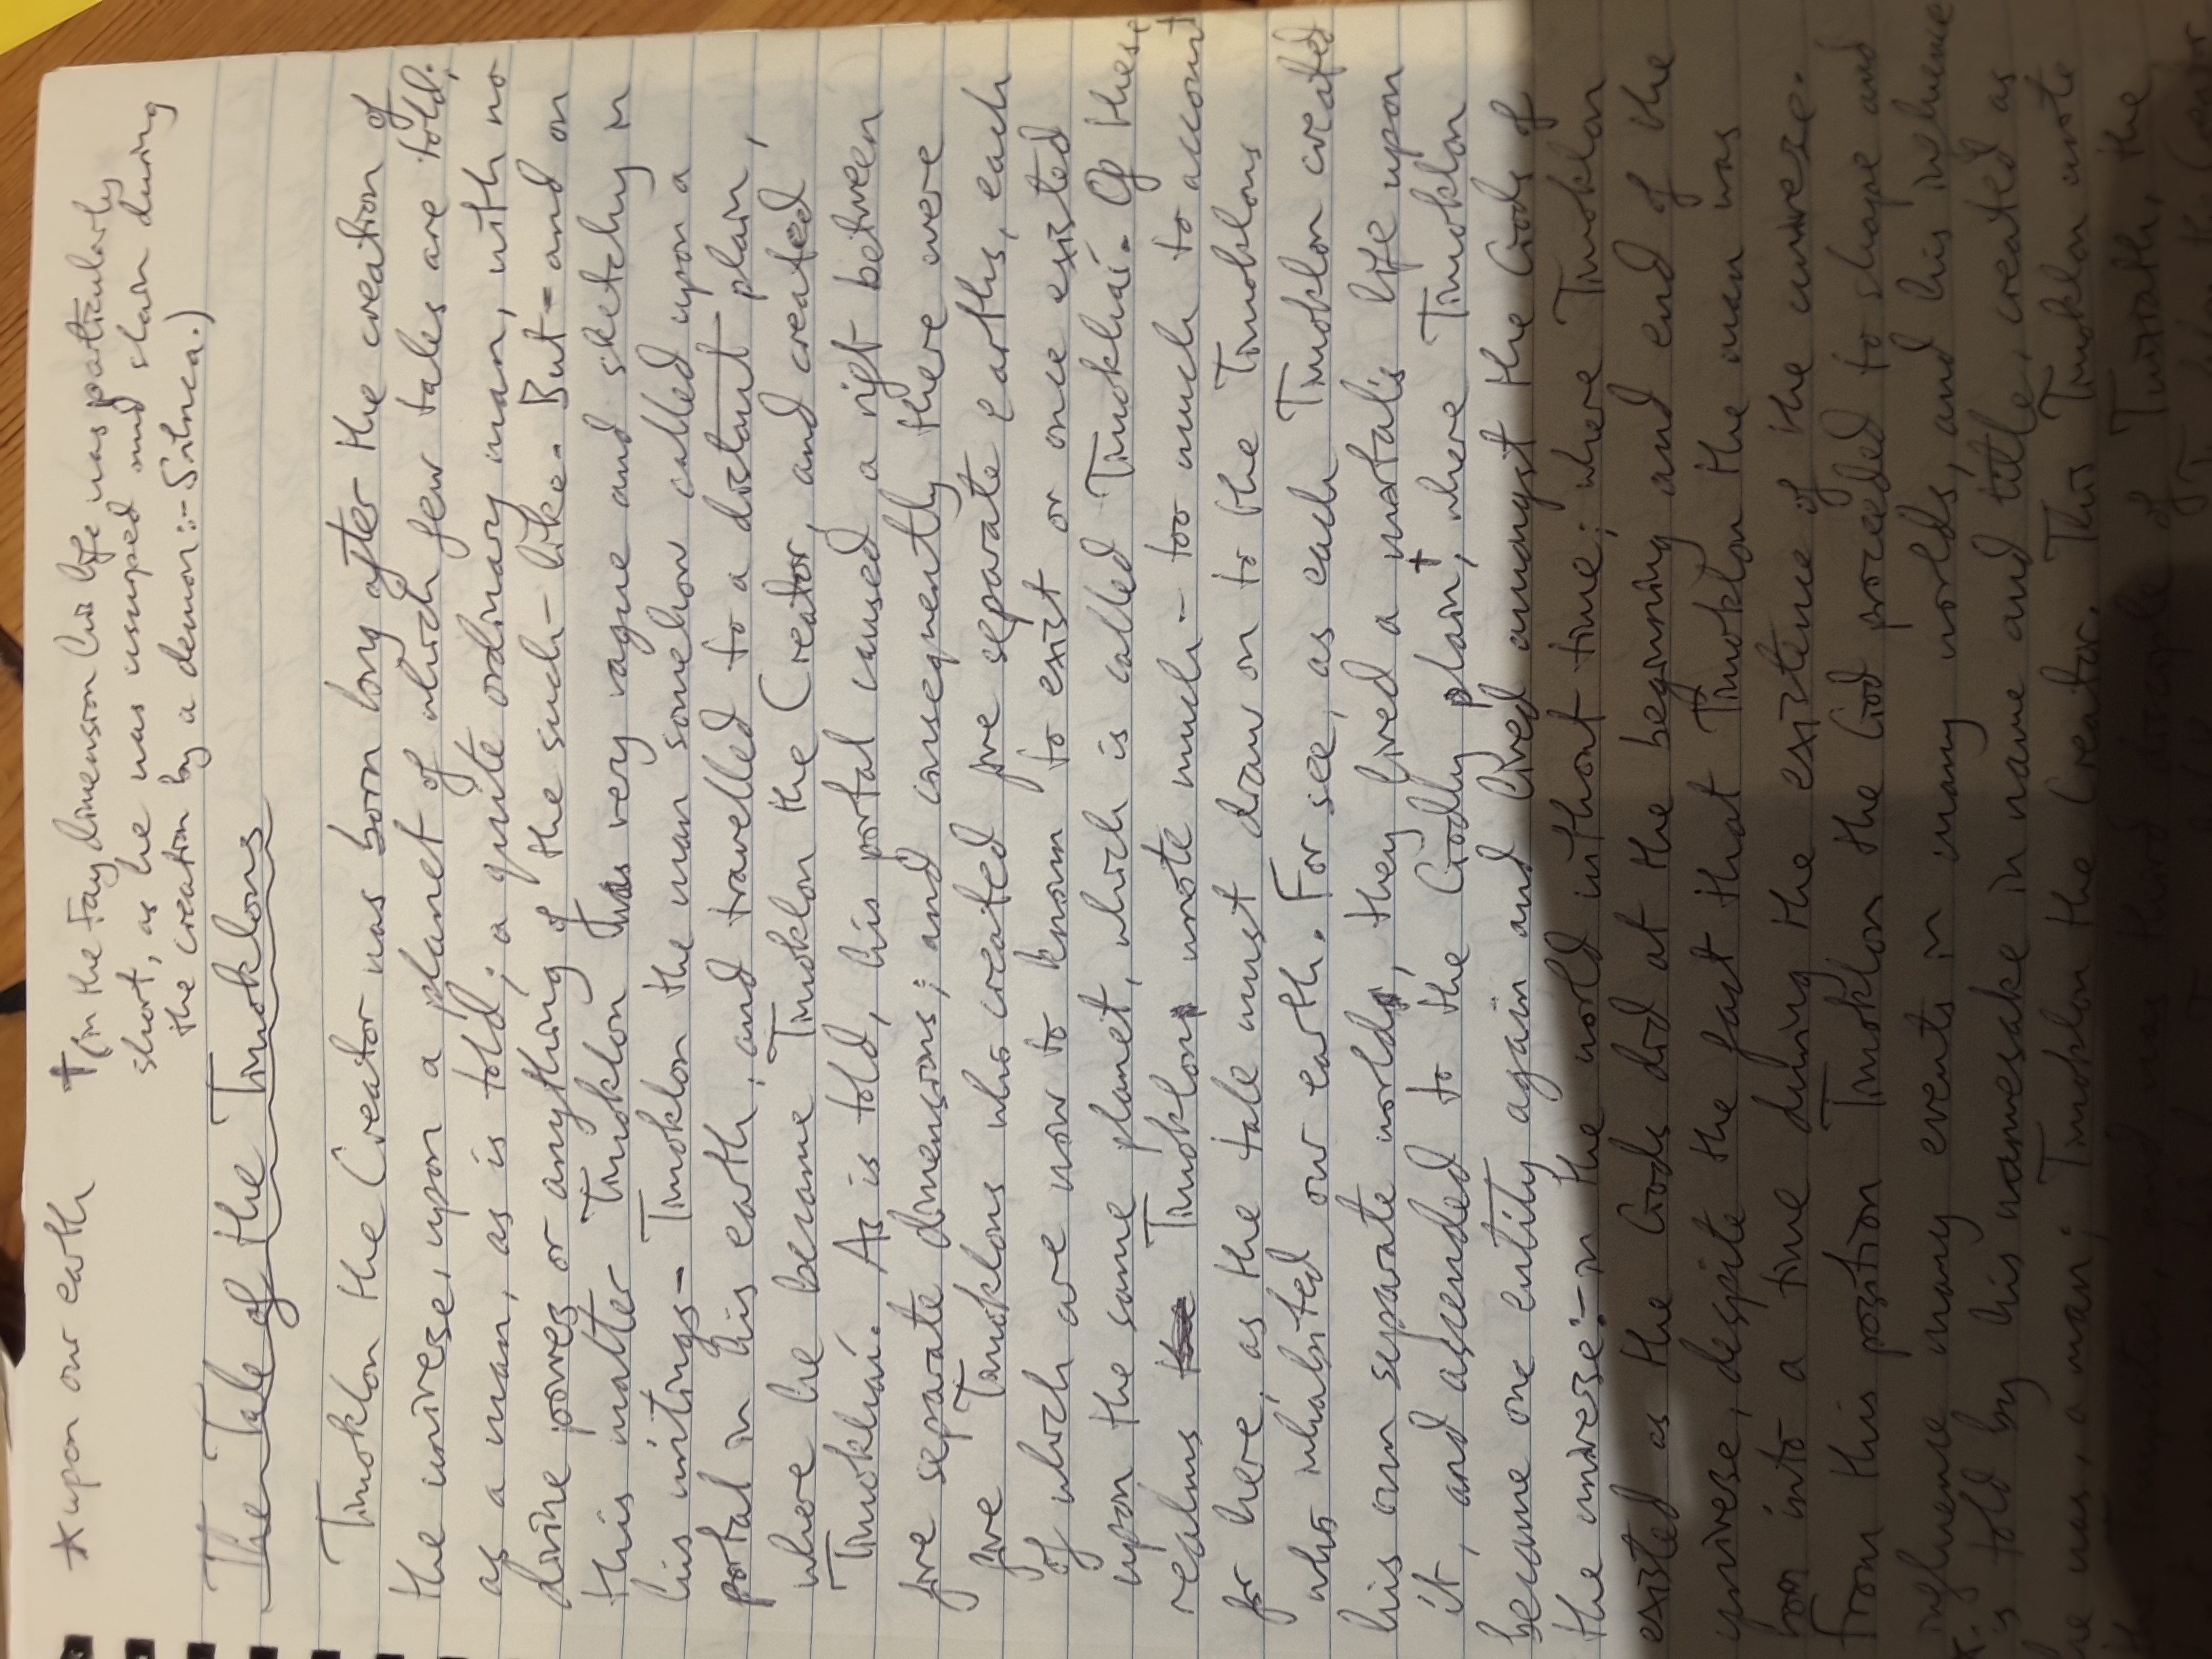 *upon our earth
†(in the Fay dimension his life was particularly
short, as he was usurped and slain during
the creation by a demon:-
The Tale of the Timoklons
Timoklon the Creator was born long after the creation of
the universe, upon a planet of which few tales are told;
as a man, as is told; a quite ordinary man, with no
divine powers or anything of the such-like. But - and on
this matter Timoklon was very vague and sketchy in
his writings - Timoklon the man somehow called upon a
portal in his earth, and travelled to a distant plain,
where he became Timoklon the Creator, and created
Timokhaí. As is told, his portal caused a rift between
five separate dimensions; and consequently there were
five Timoklons who created five separate earths, each
of which are now to known to exist or once existed
upon the same planet, which is called Timokhaí. Of these
realms the Timoklon wrote much - too much to account
for here, as the tale must draw on to the Timoklons
who inhabited our earth. For see, as each Timoklon created
his own separate world, they lived a mortal's life upon
it, and ascended to the Godly plain†, where Timoklon
became one entity again and lived amongst the Gods of
the universe:- in the world without time; where Timoklon
existed as the Gods did at the beginning and end of the
universe, despite the fact that Timoklon the man was
born into a time during the existence of the universe.
From this position Timoklon the God proceeded to shape and
influence many events in many worlds, and his influence
*is told by his namesake in name and title, created as
he was, a man; Timoklon the Creator. This Timoklon wrote
the and was third disciple of the